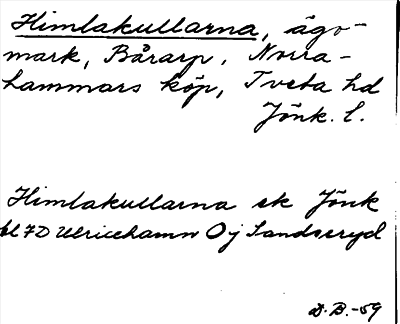 Himlakullarna, ägo-
mark, Bårarp, Norra-
hammars köp, Tveta hd
Jönk. l.
Himlakullarna ek Jönk
bl 7D Ulricehamn Oj Sandseryd
D.B.-59